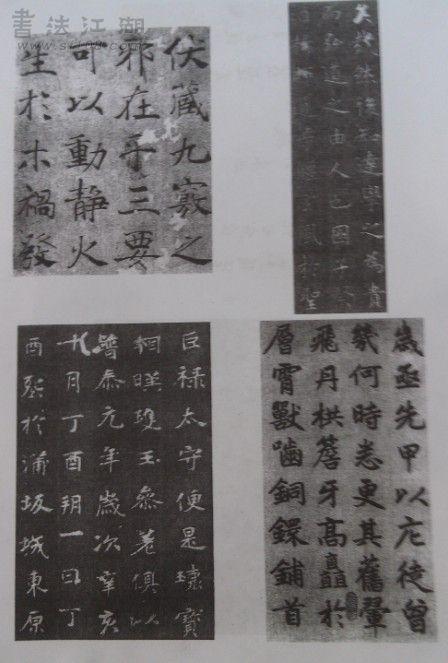 書法江湖
伏藏九竅之
邪在乎三要
可以動靜火
生於木禍發
然後知達學之為貴
而弘道之由人也因
巨禄太守便是寶
相暎玉參差俱以
普泰元年歲次辛亥
十月丁酉朔一日丁
酉於蒲坂城東原
歲亟先甲以庀徒曾
幾何時悉更其舊翬
飛丹栱簷牙高矗於
層霄獸嚙銅鐶鋪首